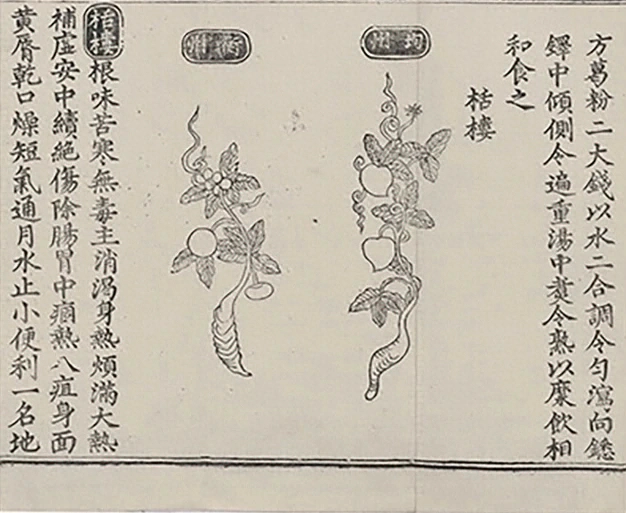 方葛粉二大錢以水二合調令勻瀉向
中傾側令遍重湯中煑令熟以糜飲相
和食之
栝樓
均州
衡州
栝樓根味苦寒無毒主消渴身熱煩滿大熱
補虛安中續絕傷除腸胃中痼熱八疸身面
黃脣乾口燥短氣通月水止小便利一名地